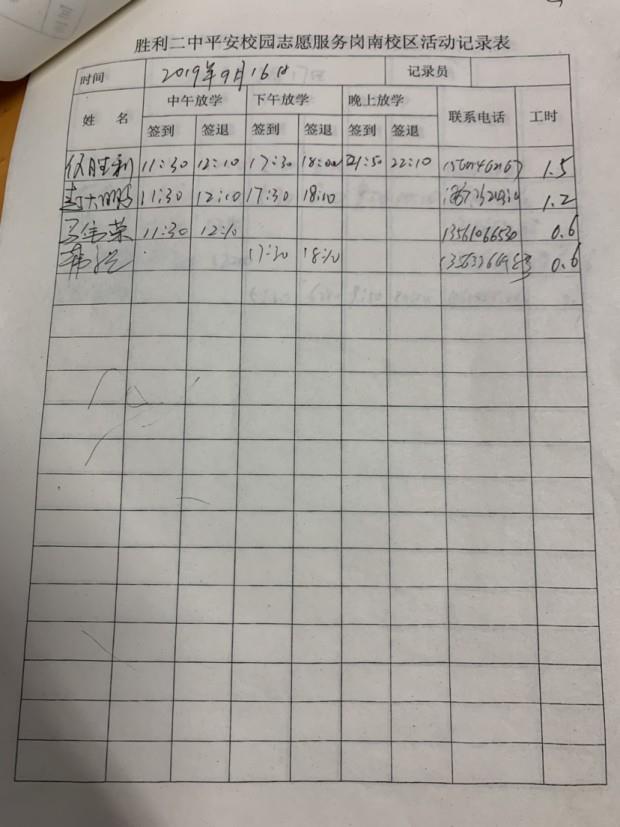 胜利二中平安校园志愿服务岗南校区活动记录表
时间 2019年9月16日 记录员
姓 名 中午放学 下午放学 晚上放学 联系电话 工时
签到 签退 签到 签退 签到 签退
胜利 11:30 12:10 17:30 18:00 21:50 22:10 1.5
11:30 12:10 17:30 18:10 1.2
荣 11:30 12:10 13561066530 0.6
韩 17:30 18:10 0.6